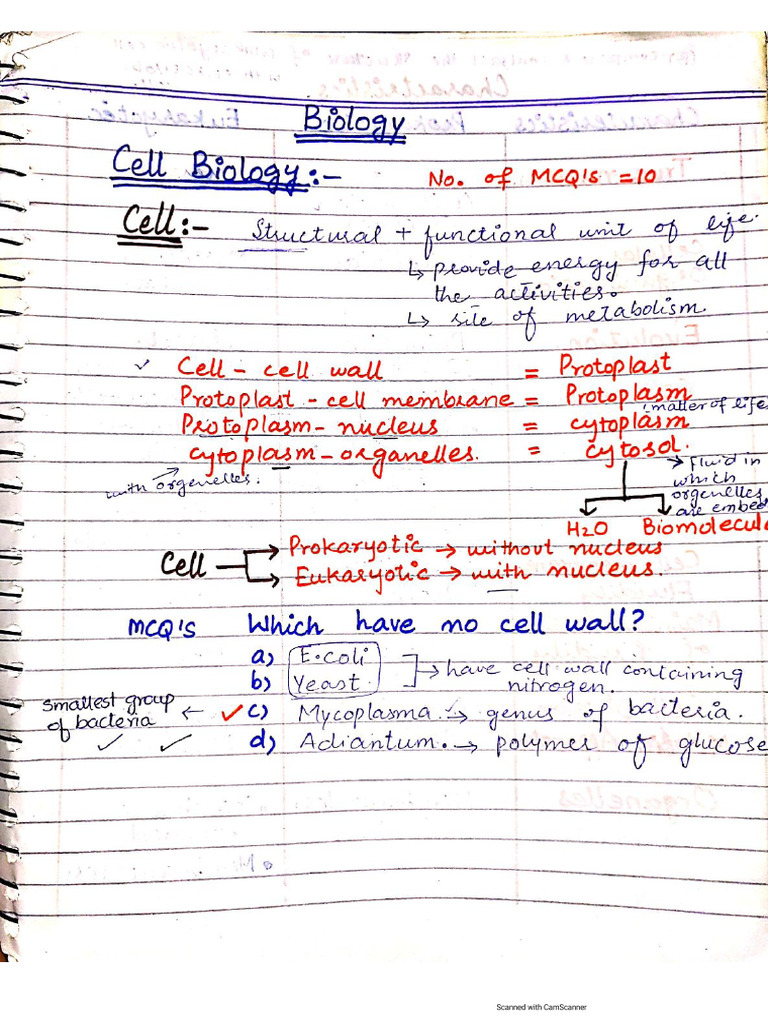 Biology
Cell Biology:-
No. of MCQ's = 10
Cell:- Structural + functional unit of life.
↳ provide energy for all
the activities.
↳ site of metabolism.
✓ Cell - cell wall = Protoplast
Protoplast - cell membrane = Protoplasm
matter of life
Protoplasm - nucleus = cytoplasm
cytoplasm - organelles. = cytosol.
with orgenelles.
→ fluid in
which
orgenelles
are embed
H2O Biomolecul
Cell → Prokaryotic → without nucleus
→ Eukaryotic → with nucleus.
MCQ'S Which have no cell wall?
a) E.coli
b) Yeast
→ have cell wall containing
nitrogen.
smallest group
of bacteria ← ✓ c) Mycoplasma. → genus of bacteria.
✓ ✓ d) Adiantum. → polymer of glucose
Scanned with CamScanner